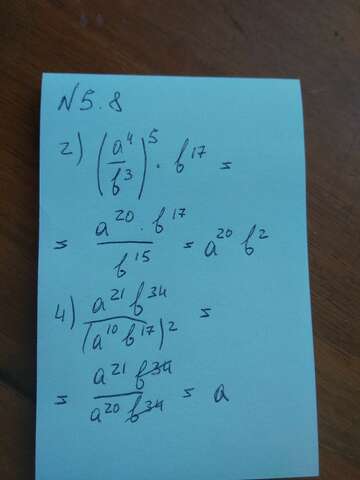 N 5.8
2) (a⁴/b³)⁵ · b¹⁷ =
= a²⁰ · b¹⁷ / b¹⁵ = a²⁰ b²
4) a²¹ b³⁴ / (a¹⁰ b¹⁷)² =
= a²¹ b³⁴ / a²⁰ b³⁴ = a